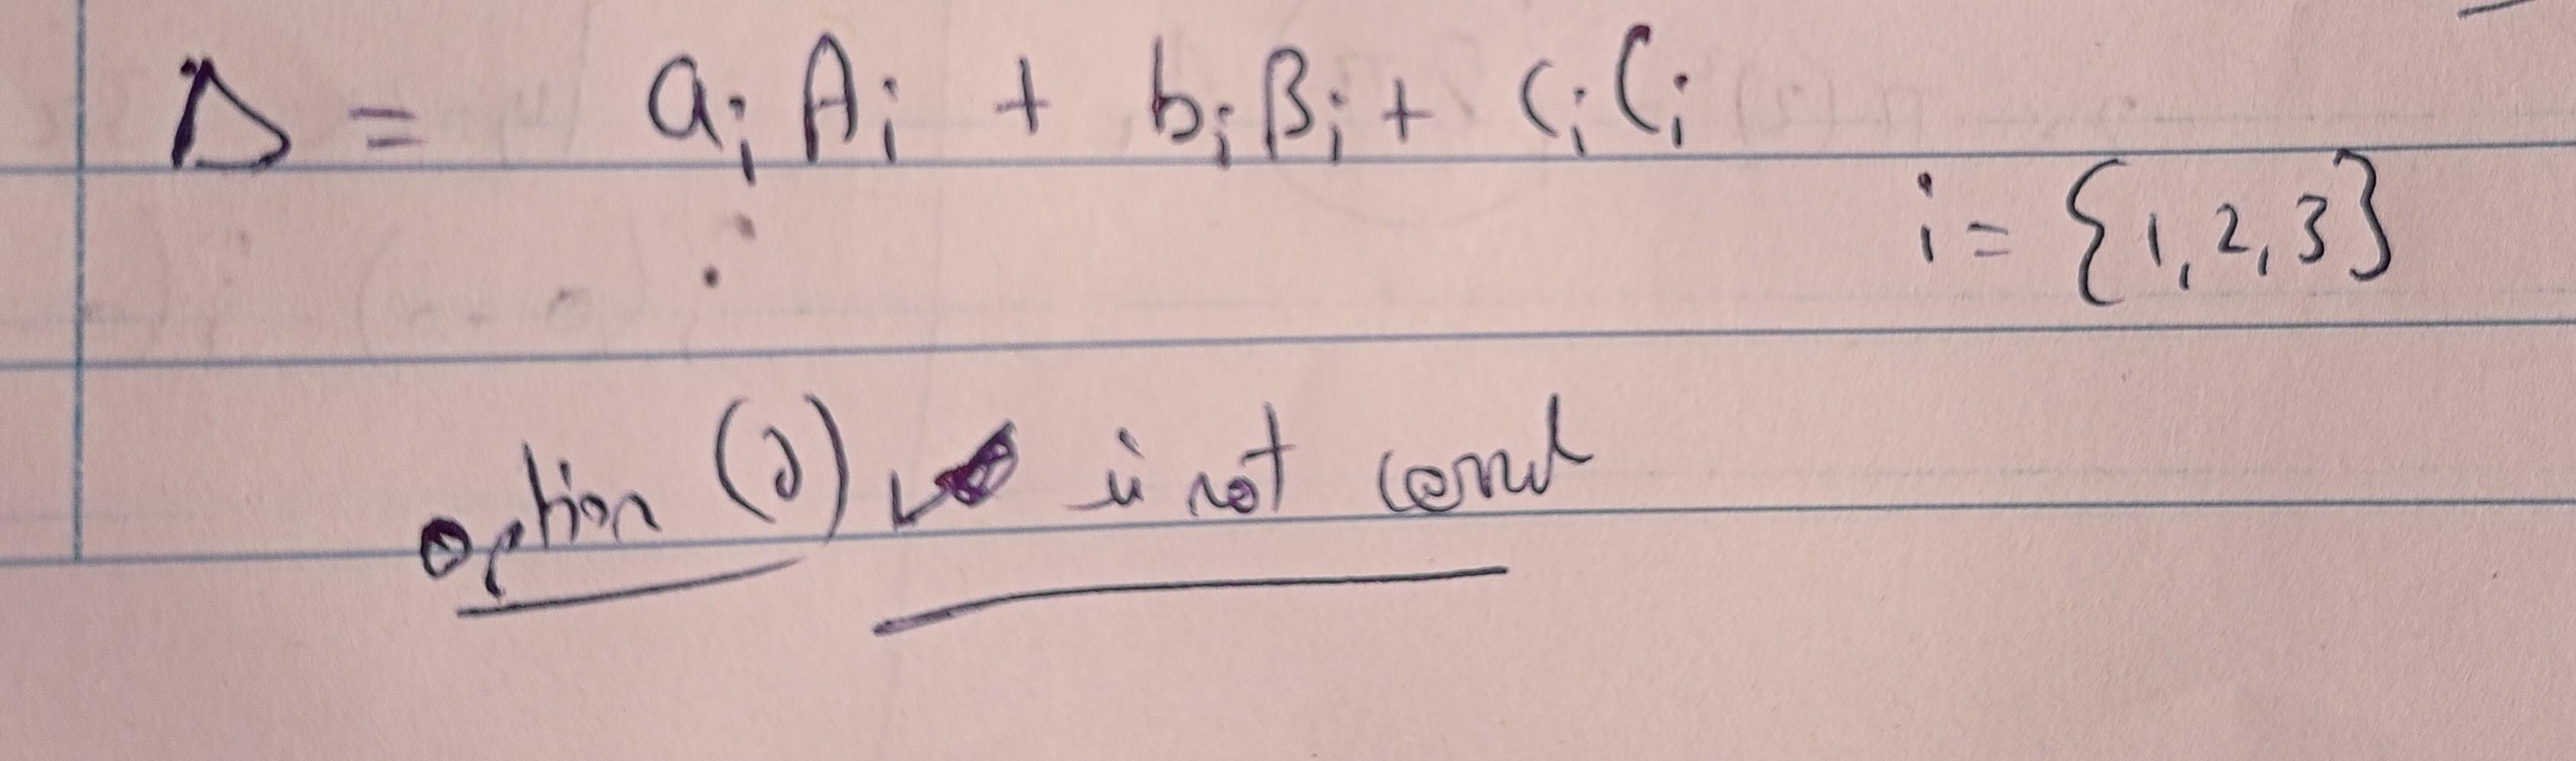 Δ = aᵢ Aᵢ + bᵢ Bᵢ + cᵢ Cᵢ
i = {1, 2, 3}
option (2) is not correct